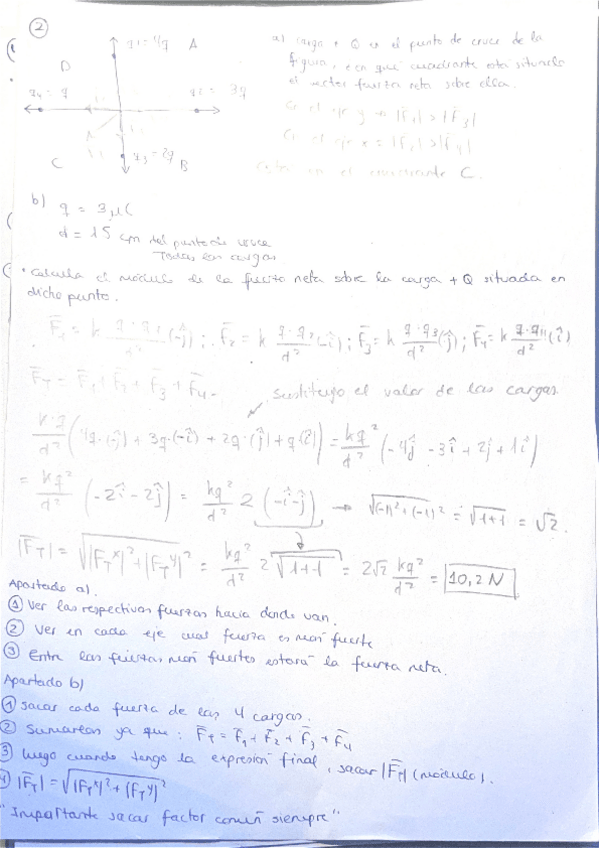 ②
q1=4q A
D
q4 = q q2 = 3q
C q3=2q B
a) carga + Q en el punto de cruce de la
figura, en qué cuadrante está situado
el vector fuerza neta sobre ella.
En el eje y → |F1|>|F3|
En el eje x = |F2|>|F4|
Estará en el cuadrante C.
b) q = 3 μC
d = 15 cm del punto de cruce
Todas las cargas.
• Calcula el módulo de la fuerza neta sobre la carga + Q situada en
dicho punto.
F̄1 = k q·q1/d² (-ĵ); F̄2 = k q·q2/d² (-î); F̄3 = k q·q3/d² (ĵ); F̄4 = k q·q4/d² (î)
F̄T = F̄1 + F̄2 + F̄3 + F̄4. sustituyo el valor de las cargas
k·q/d² (4q·(-ĵ) + 3q·(-î) + 2q·(ĵ) + q(î)) = kq²/d² (-4ĵ - 3î + 2ĵ + 1î)
= kq²/d² (-2î - 2ĵ) = kq²/d² 2 (-î-ĵ) → √(-1)²+(-1)² = √1+1 = √2.
|F̄T| = √|FTˣ|²+|FTʸ|² = kq²/d² 2 √1+1 = 2√2 kq²/d² = 10,2 N
Apartado a).
① Ver las respectivas fuerzas hacia donde van.
② Ver en cada eje cual fuerza es más fuerte
③ Entre las fuerzas más fuertes estará la fuerza neta.
Apartado b)
① Sacar cada fuerza de las 4 cargas.
② Sumarlas ya que: F̄T = F̄1 + F̄2 + F̄3 + F̄4
③ luego cuando tengo la expresión final, sacar |F̄T| (módulo).
4) |F̄T| = √|FTˣ|²+|FTʸ|²
"Importante sacar factor común siempre"